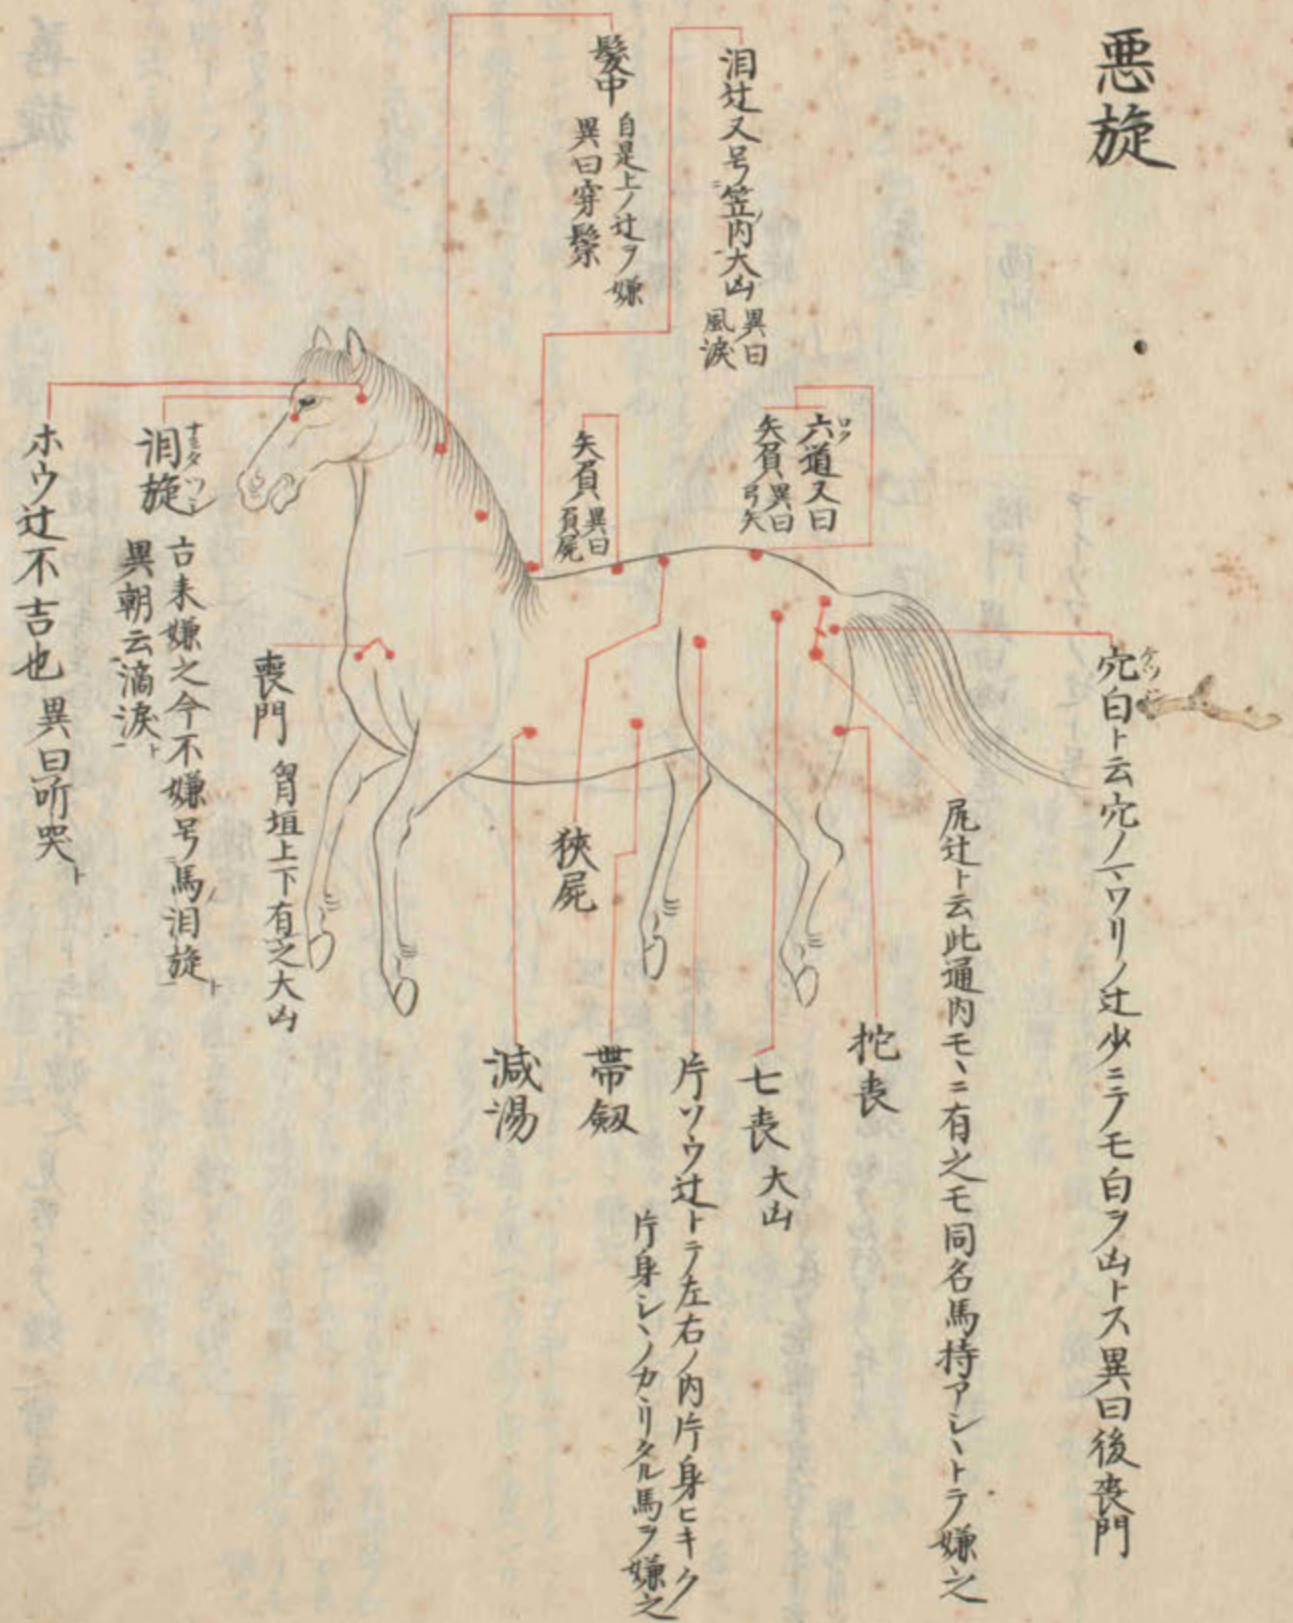 悪旋
泪辻又号笠ノ内大凶
異曰
風涙
髪中
自是上ノ辻ヲ嫌
異曰穿鬃
六道又曰
ロク
矢負異曰
弓矢
矢負
異曰
負屍
穴白ト云穴ノマワリノ辻少ニテモ白ヲ凶トス異曰後喪門
ケツジロ
尻辻ト云此通内モヽニ有之モ同名馬持アシヽトテ嫌之
拖喪
七喪大凶
片ソウ辻トテ左右ノ内片身ヒキク
片身シヽノカヽリタル馬ヲ嫌之
帯剱
狹屍
減湯
喪門
胷垣上下有之大凶
泪旋
ナミタツシ
古来嫌之今不嫌号馬ノ泪旋ト
異朝云滴涙ト
ホウ辻不吉也異曰听哭ト